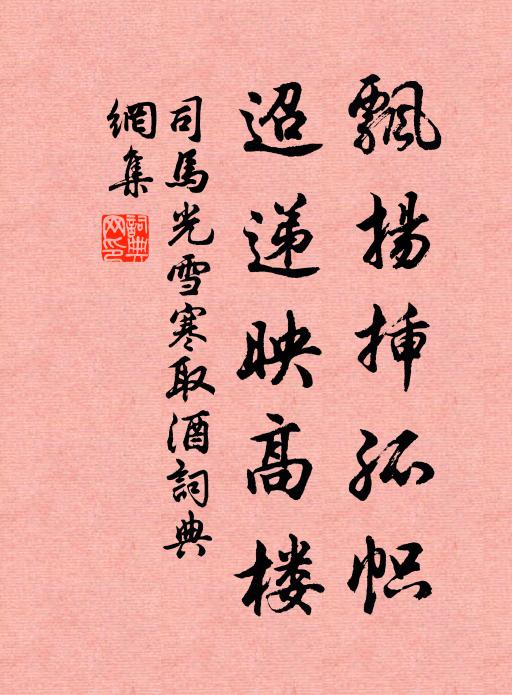 飄揚挿孤帜
迢递映高楼
司馬光雪寒取酒詞典
網集
詞典網印